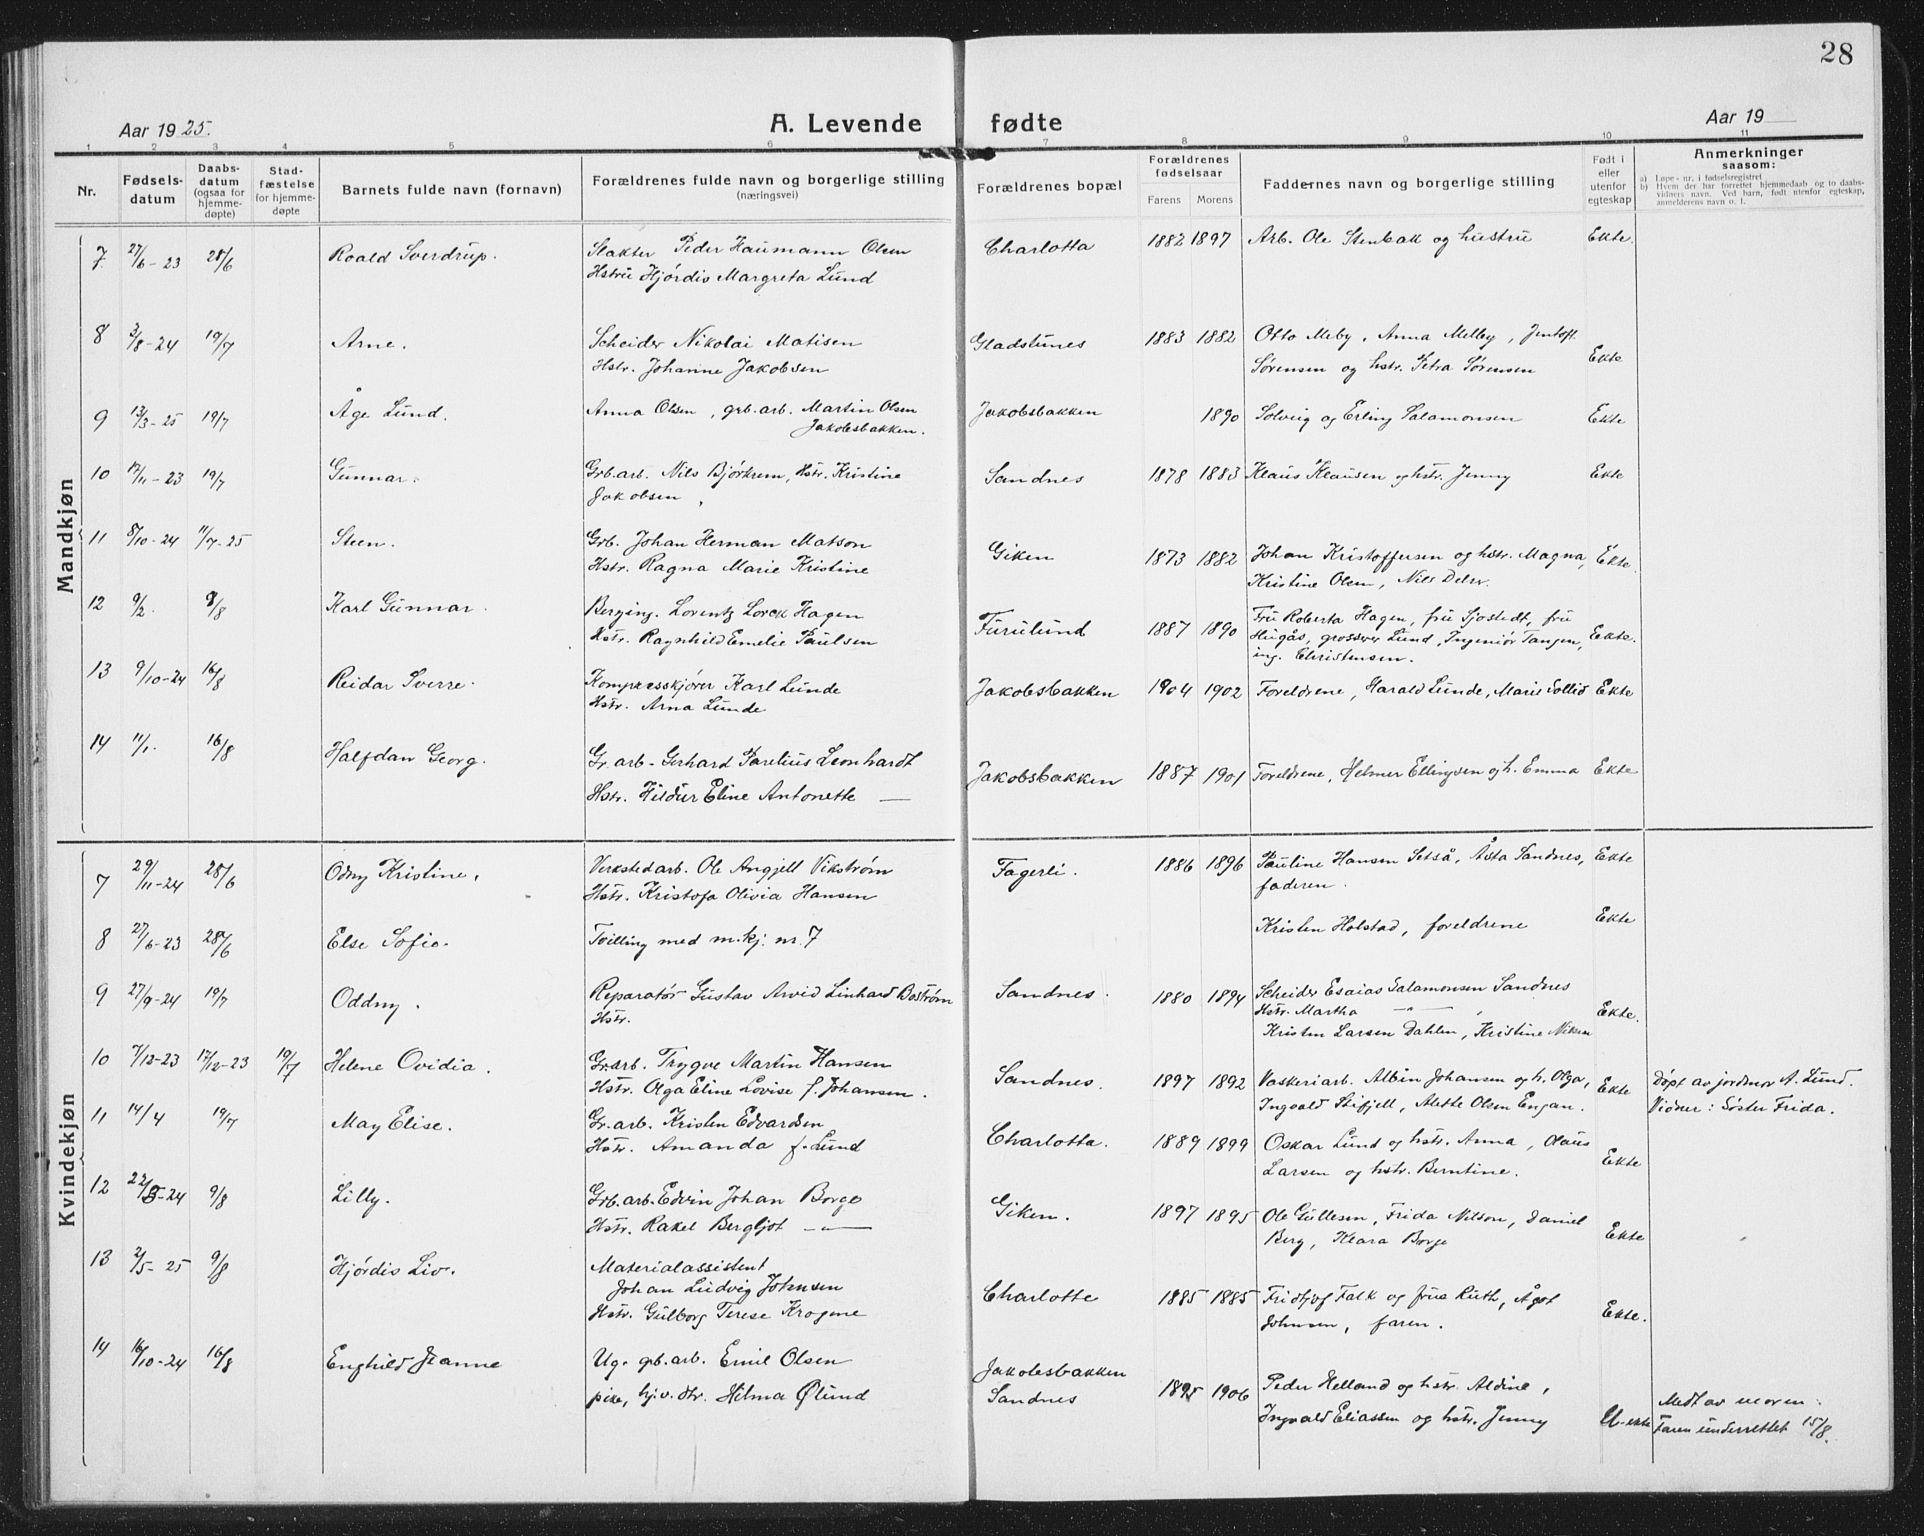 28
Aar 1925. A. Levende fødte Aar 19
1 2 3 4 5 6 7 8 9 10 11
Nr. Fødsels-datum Daabs-datum (ogsaa for hjemme-døpte) Stad-fæstelse for hjemme-døpte Barnets fulde navn (fornavn) Forældrenes fulde navn og borgerlige stilling (næringsvei) Forældrenes bopæl Forældrenes fødselsaar Farens Morens Faddernes navn og borgerlige stilling Født i eller utenfor egteskap Anmerkninger saasom:
a) Løpe-nr. i fødselsregistret
b) Hvem der har forrettet hjemmedaab og to daabsvidners navn. Ved barn, født utenfor egteskap, anmelderens navn o. l.
Mandkjøn
7 27/6-23 28/6 Roald Sverdrup. Stakter Peder Haumann Olsen Charlotta 1882 1897 Arb. Ole Stenbak og hustru Ekte.
Hstru Hjördis Margreta Lund
8 3/8-24 19/7 Arne. Scheider Nikolai Matisen Gladstunes 1883 1882 Otto Meby, Anna Melby, Jentoft
Hstr. Johanne Jakobsen Sørensen og hstr. Petra Sørensen Ekte
9 13/3-25 19/7 Åge Lund. Anna Olsen, grb.arb. Martin Olsen Jakobsbakken 1890 Solveig og Erling Salamonsen Ekte
Jakobsbakken.
10 17/11-23 19/7 Gunnar. Grb.arb. Nils Bjørkrem, Hstr. Kristine Sandnes 1878 1883 Klaus Klausen og hstr. Jenny Ekte
Jakobsen
11 8/10-24 11/7-25 Steen. Grb. Johan Herman Matson Giken 1873 1882 Johan Kristoffersen og hstr. Magna, Ekte.
Hstr. Ragna Marie Kristine Kristine Olsen, Nils
12 9/2. 9/8 Karl Gunnar. Berging. Lorentz Lorck Hagen Furulund 1887 1890 Fru Roberta Hagen, fru Sjøstedt, fru
Hstr. Ragnhild Emelie Paulsen Hugås, grosserer Lund, Ingeniør Tangen, Ekte.
ing. Christensen.
13 9/10-24 16/8 Reidar Sverre. Kompresskjører Karl Lunde Jakobsbakken 1904 1902 Foreldrene, Harald Lunde, Marie Sollid Ekte
Hstr. Arna Lunde
14 11/1. 16/8 Halfdan Georg. Gr.arb. Gerhard Parelius Leonhardt Jakobsbakken 1887 1901 Foreldrene, Helmer Ellingsen og h. Emma Ekte
Hstr. Hildur Eline Antonette —
Kvindekjøn
7 29/11-24 28/6 Odny Kristine. Verkstedarb. Ole Angjell Vikstrøm Fagerli. 1886 1896 Pauline Hansen Setså, Åsta Sandnes, Ekte
Hstr. Kristofa Olivia Hansen faderen.
8 27/6-23 28/6 Else Sofie. Tvilling med m.kj. nr. 7 Kristen Holstad, foreldrene Ekte
9 27/9-24 19/7 Oddny. Reparatør Gustav Arvid Linhard Boström Sandnes. 1880 1894 Scheider Esaias Salamonsen Sandnes
Hstr. Hstr. Martha — " — Ekte.
Kristen Larsen Dahlen, Kristine
10 7/12-23 17/12-23 19/7 Helene Ovidia. Gr.arb. Trygve Martin Hansen Sandnes. 1897 1892 Vaskeriarb. Albin Johansen og h. Olga, Ekte Døpt av jordmor A. Lund.
Hstr. Olga Eline Lovise f. Johansen. Ingvald Stifjell, Alette Olsen Engan. Vidner: Søster Frida.
11 14/4 19/7 May Elise. Gr.arb. Kristen Edvardsen Charlotta. 1889 1899 Oskar Lund og hstr. Anna, Olaus
Hstr. Amanda f. Lund Larsen og hstr. Berntine. Ekte
12 22/8-24 9/8 Lilly. Grb.arb. Edvin Johan Borge Giken. 1897 1895 Ole Gullesen, Frida Nilson, Daniel
Hstr. Rakel Bergljot — " — Berg, Klara Borge Ekte
13 2/5-25 9/8 Hjørdis Liv. Materialassistent
Johan Ludvig Johnsen Charlotte 1885 1885 Fridtjof Falk og frue Ruth, Ågot
Hstr. Gulborg Terese Krogme Johnsen, faren. Ekte.
14 16/10-24 16/8 Enghild Jeanne Ug. grb.arb. Emil Olsen Jakobsbakken
pike, hj.v. dtr. Helma Ølund Sandnes 1895 1906 Peder Helland og hstr. Aldine, Meldt av moren.
Ingvald Eliassen og hstr. Jenny U-ekte Faren underrettet 15/8.